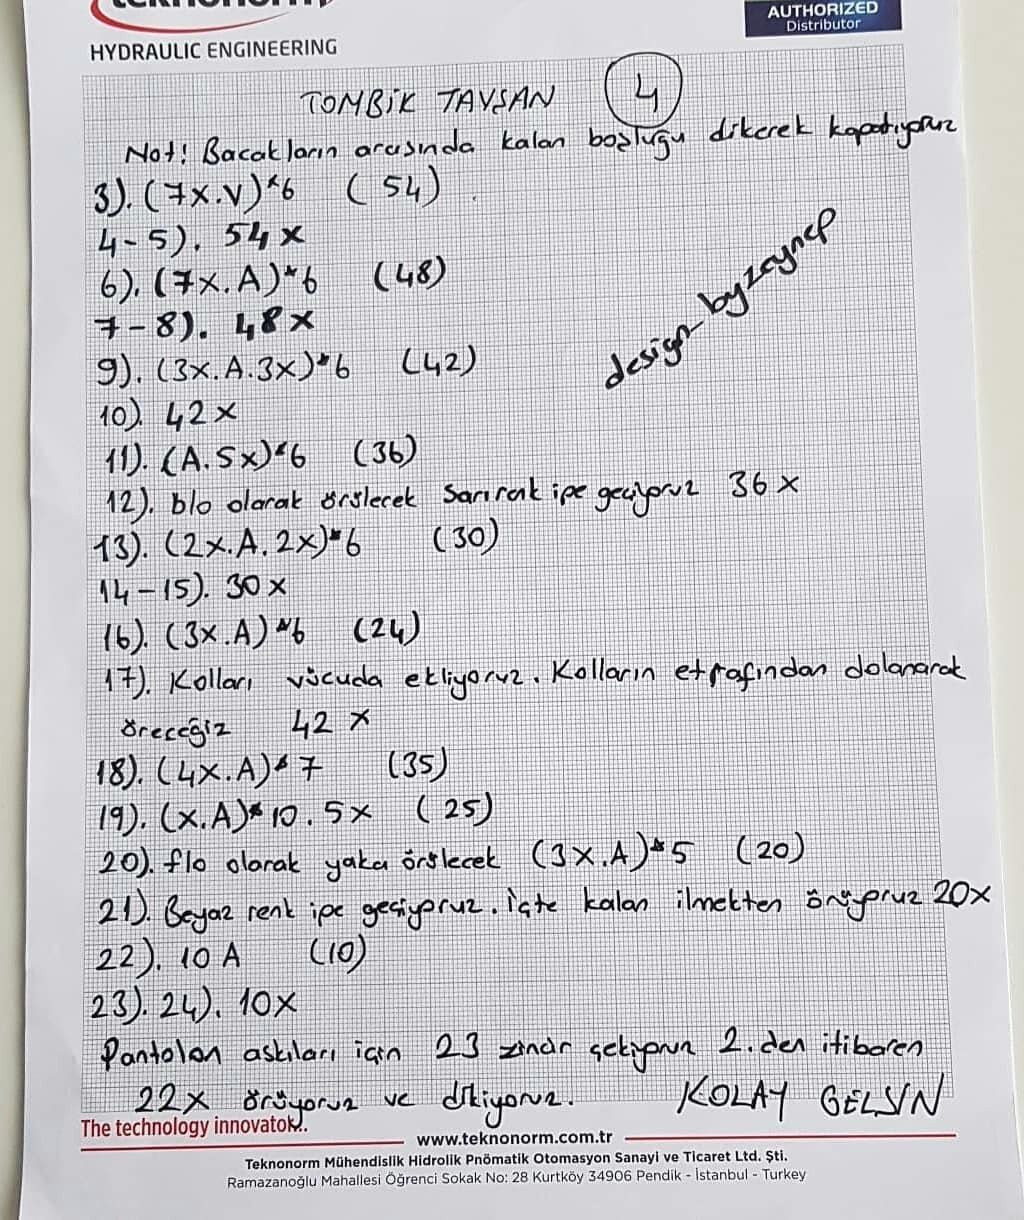 AUTHORIZED
Distributor
HYDRAULIC ENGINEERING
TOMBİK TAVŞAN 4
Not! Bacakların arasında kalan boşluğu dikerek kapatıyoruz
3). (7x.V)*6 (54)
4-5). 54x
6). (7x.A)*6 (48)
7-8). 48x
9). (3x.A.3x)*6 (42)
10). 42x
11). (A.5x)*6 (36)
12). blo olarak örülecek Sarı renk ipe geçiyoruz 36x
13). (2x.A.2x)*6 (30)
14-15). 30x
16). (3x.A)*6 (24)
17). Kolları vücuda ekliyoruz. Kolların etrafından dolanarak
öreceğiz 42x
18). (4x.A)*7 (35)
19). (x.A)*10.5x (25)
20). flo olarak yaka örülecek (3x.A)*5 (20)
21). Beyaz renk ipe geçiyoruz. İçte kalan ilmekten örüyoruz 20x
22). 10A (10)
23). 24). 10x
Pantolon askıları için 23 zincir çekiyoruz 2.den itibaren
22x örüyoruz ve dikiyoruz. KOLAY GELSİN
design-byzeynep
The technology innovatok..
www.teknonorm.com.tr
Teknonorm Mühendislik Hidrolik Pnömatik Otomasyon Sanayi ve Ticaret Ltd. Şti.
Ramazanoğlu Mahallesi Öğrenci Sokak No: 28 Kurtköy 34906 Pendik - İstanbul - Turkey